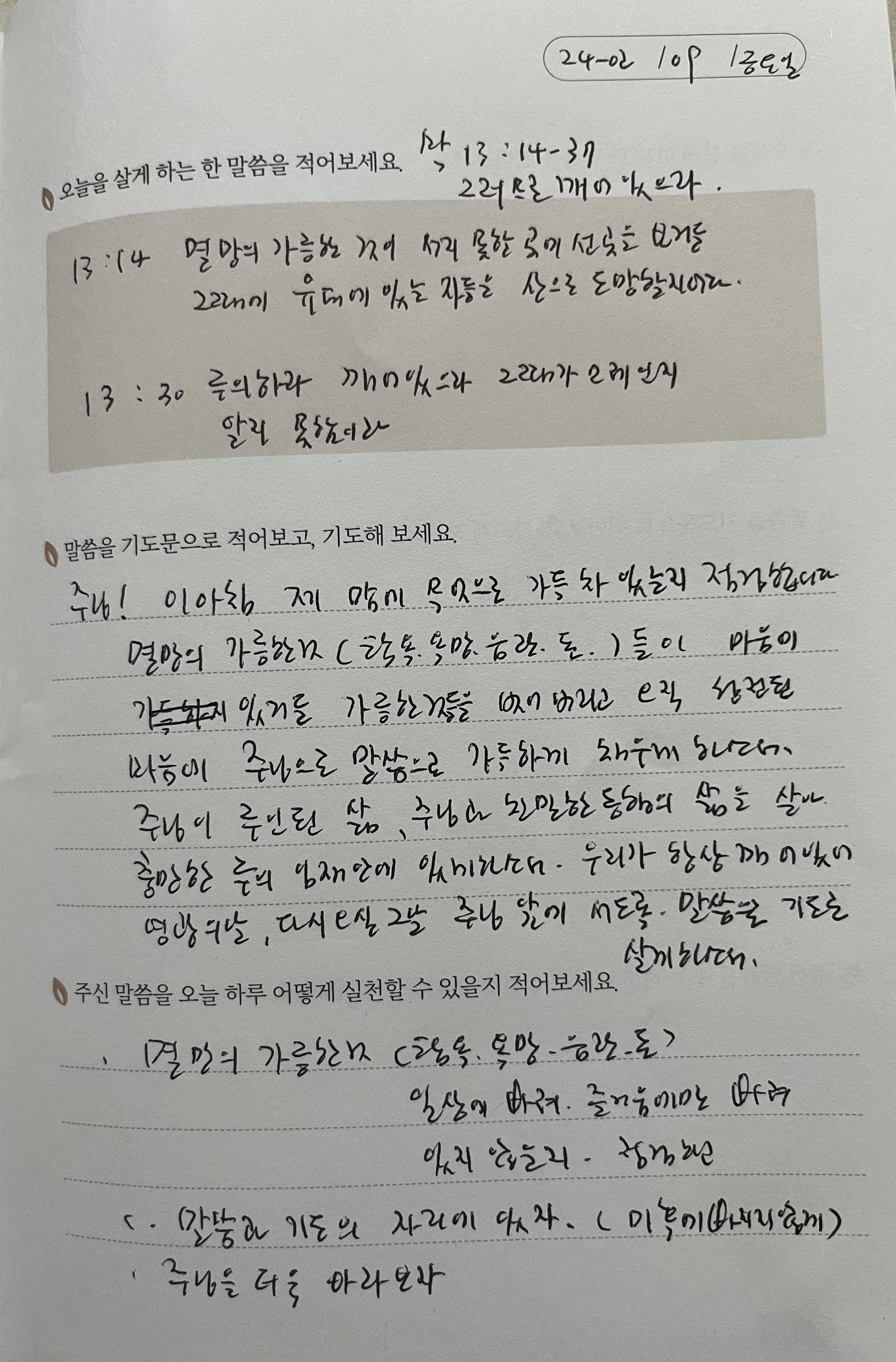 24-02 109 1금요일
오늘을 살게 하는 한 말씀을 적어보세요.
막 13:14-37
그러므로 깨어 있으라.
13:14 멸망의 가증한 것이 서지 못할 곳에 선것을 보거든
그때에 유대에 있는 자들은 산으로 도망할지어다.
13:30 주의하라 깨어있으라 그때가 언제인지
알지 못함이라
말씀을 기도문으로 적어보고, 기도해 보세요.
주님! 이아침 제 맘이 무엇으로 가득 차 있는지 점검합니다
멸망의 가증한것 (탐욕. 욕망. 음란. 돈.)들이 마음에
있거든 가증한것들을 벗어 버리고 오직
마음이 주님으로 말씀으로 가득하게 채우게 하소서.
주님이 주인된 삶, 주님과 친밀한 동행의 삶을 살아
충만한 주의 임재안에 있게하소서. 우리가 항상 깨어있어
영광의날, 다시 오실 그날 주님 앞에 서도록. 말씀을 기도로
살게하소서.
주신 말씀을 오늘 하루 어떻게 실천할 수 있을지 적어보세요.
. 멸망의 가증한것 (탐욕. 욕망. 음란. 돈)
일상에 빠져. 즐거움에만 빠져
있지 않는지.
. 말씀과 기도의 자리에 있자. (미혹에 빠지지않게)
. 주님을 더욱 바라보자